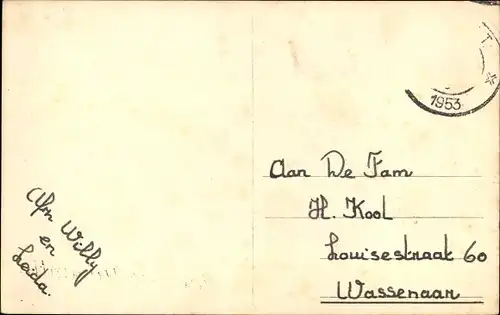 Afn Willy
en
Leida.
T *
1953
Aan De Fam
H. Kool
Louisestraat 60
Wassenaar